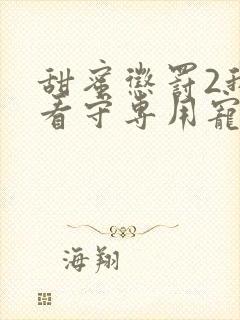 甜蜜懲罰2我
看守專用寵
海翔